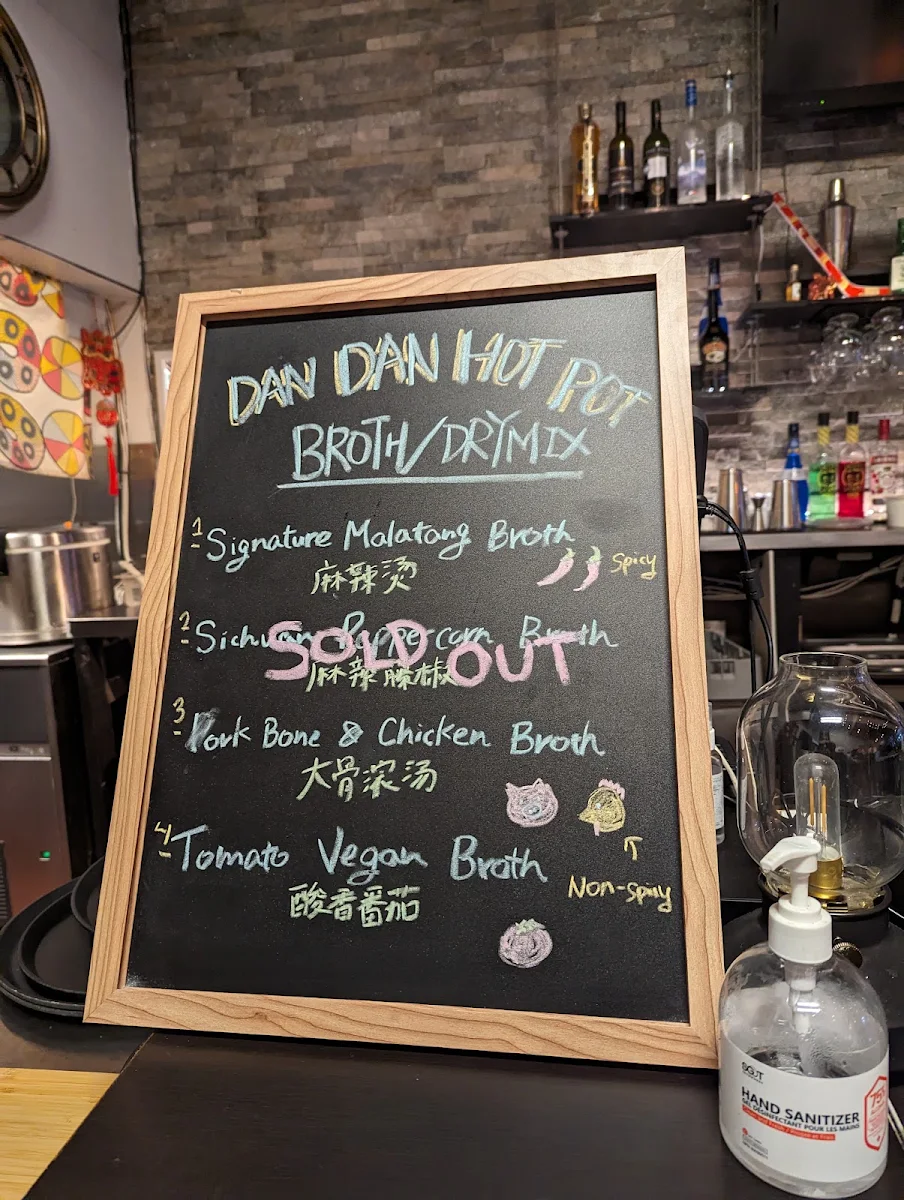 DAN DAN HOT POT
BROTH/DRYMIX
1 Signature Malatang Broth
麻辣烫
Spicy
2 Sichuan Peppercorn Broth
麻辣藤椒
SOLD OUT
3 Pork Bone & Chicken Broth
大骨滚汤
4 Tomato Vegan Broth
酸香番茄
Non-spicy
HAND SANITIZER
GEL DÉSINFECTANT POUR LES MAINS
75%